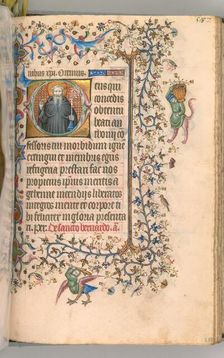 nibus xpi. Oremus.
eus qui
concedis
obtentu
beati an
thonij co
fessoris tui morbidum igne
extingui et membris egris
refrigeria prestari fac nos
propicius ipius meritis a
gehenne incendijs liberatos
integros mente et corpore t
bi feliciter in gloria presenta
ri. per. De sancto bernardo. a.